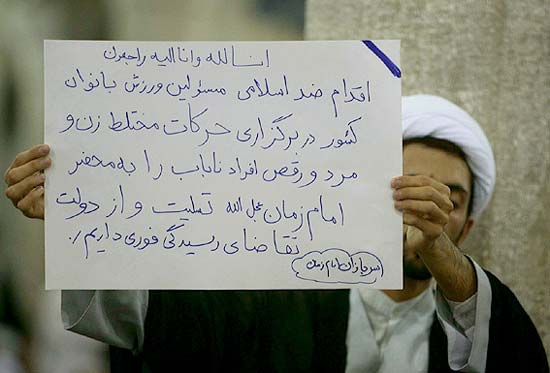 انا لله وانا اليه راجعون
اقدام ضد اسلامی مسئولین ورزش بانوان
کشور در برگزاری حرکات مختلط زن و
مرد و رقص افراد ناباب را به محضر
امام زمان عجل الله تسلیت و از دولت
تقاضای رسیدگی فوری داریم /.
سربازان امام زمان